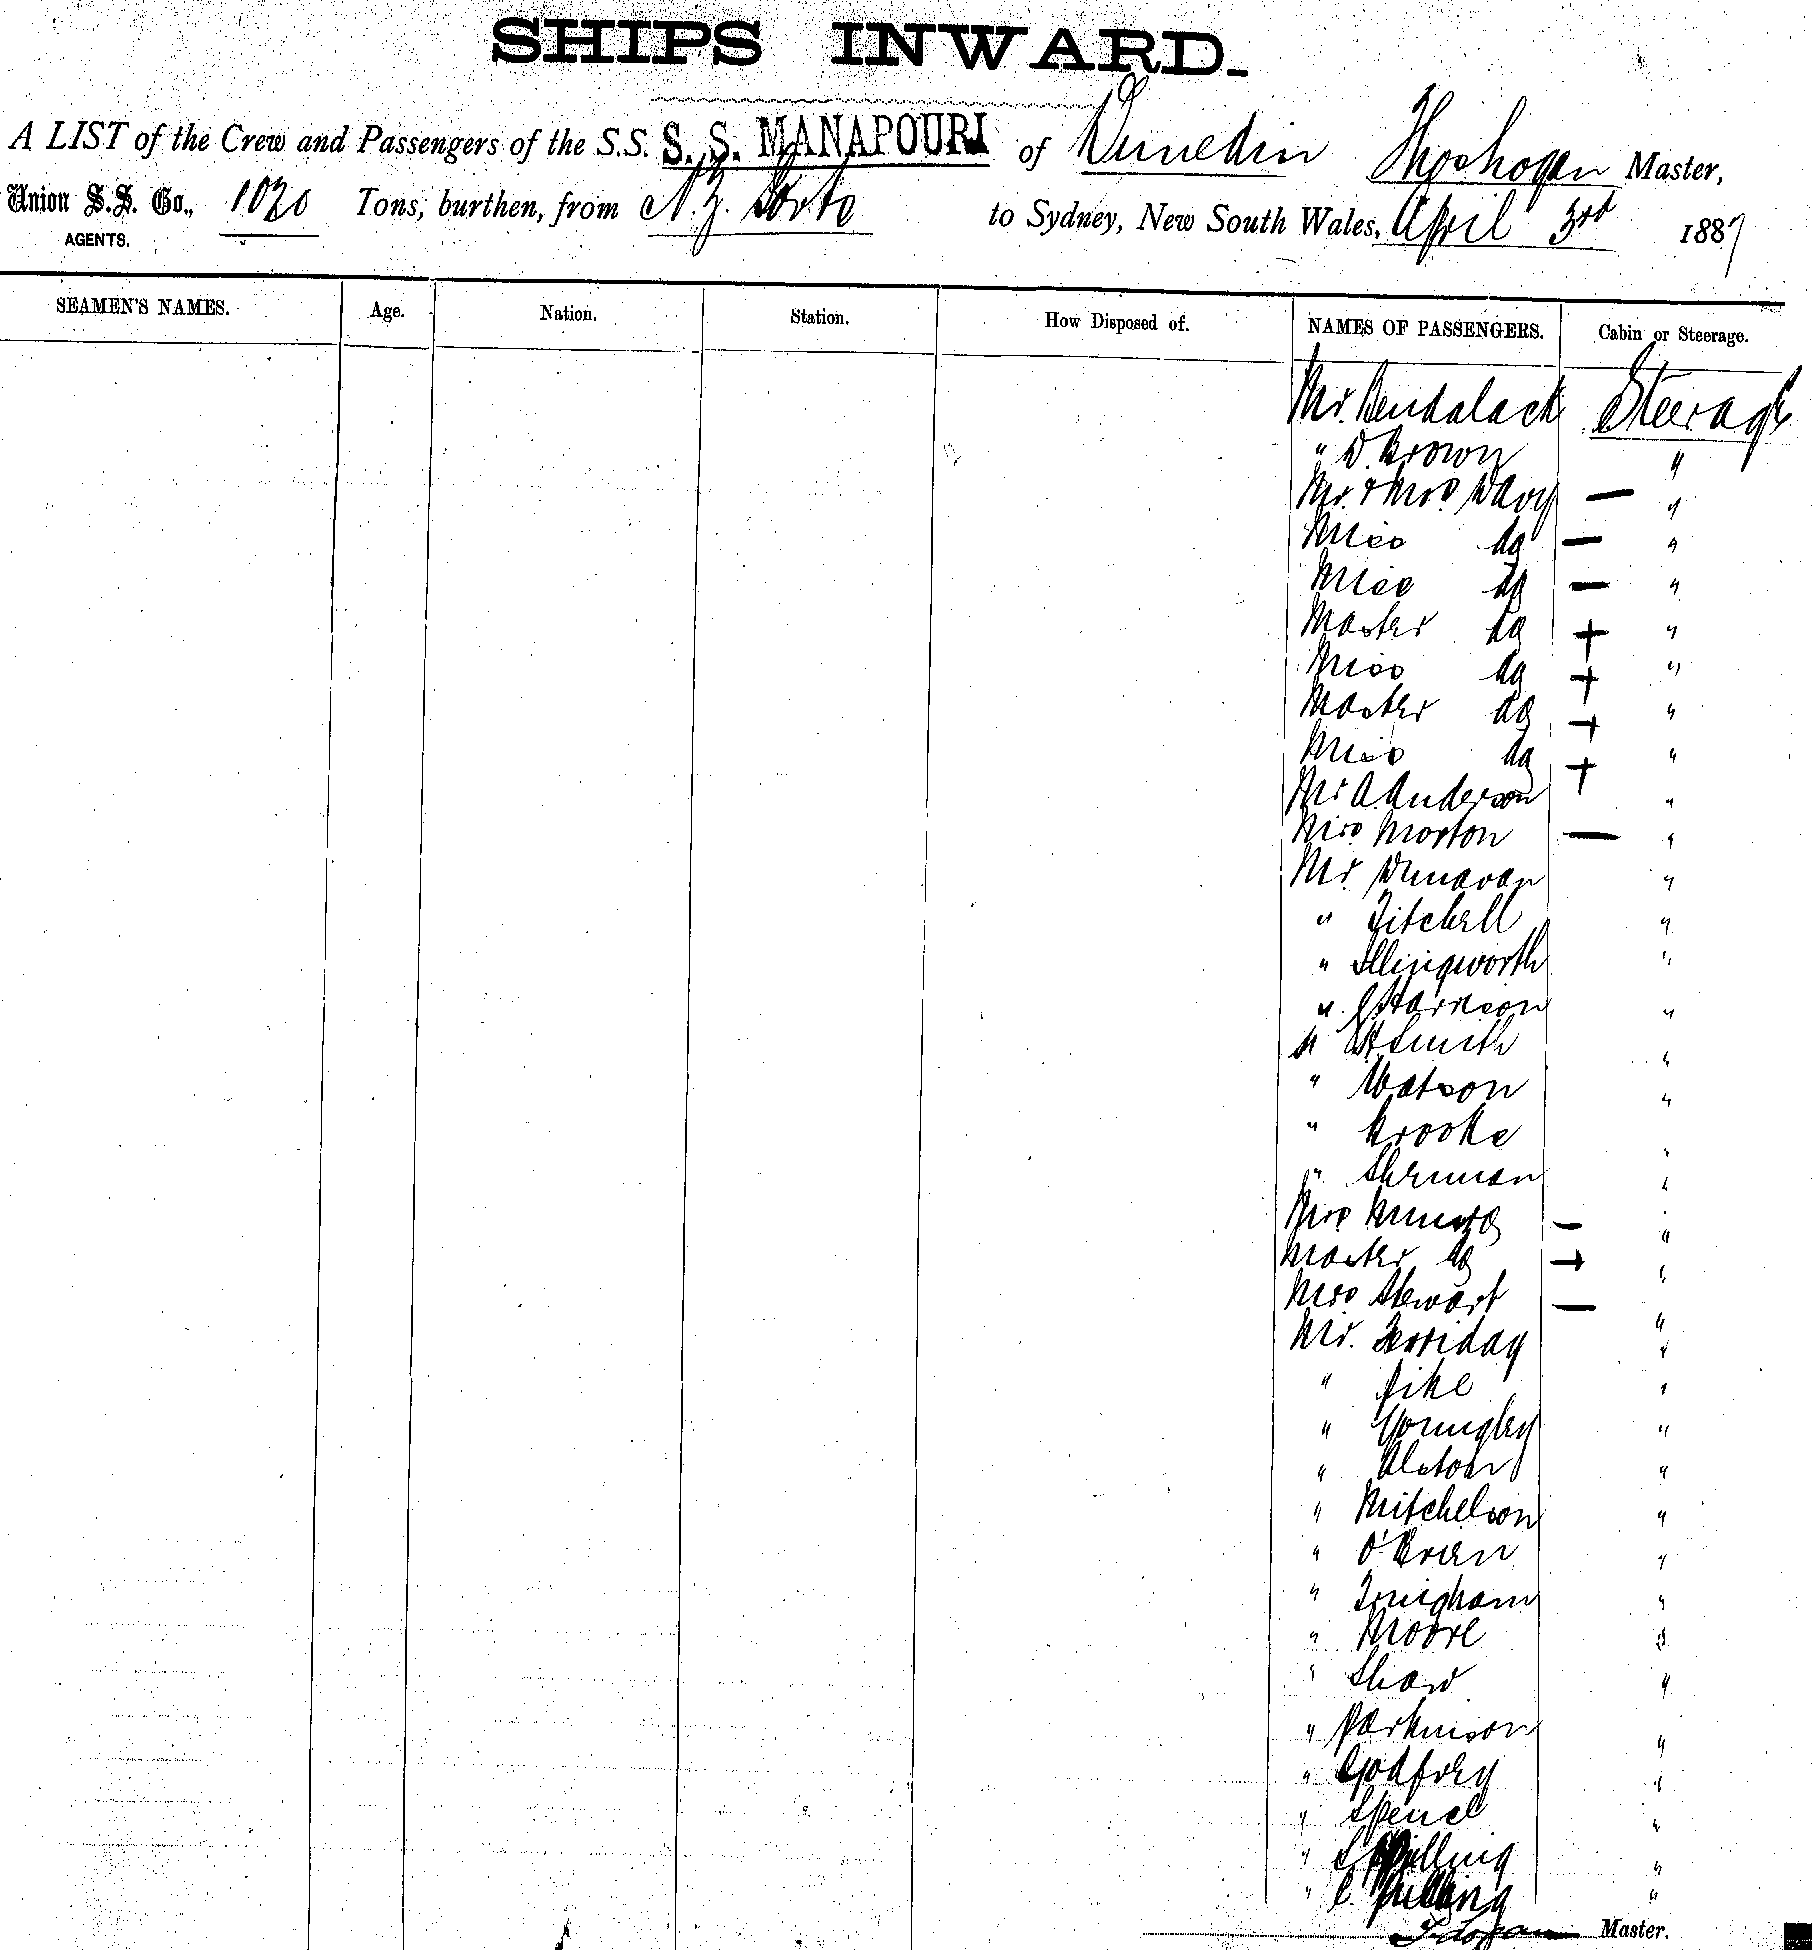 SHIPS INWARD.
A LIST of the Crew and Passengers of the S.S. S. S. MANAPOURI of Dunedin Master,
Union S.S. Co., 1020 Tons, burthen, from N.Z. Ports to Sydney, New South Wales, April 3rd 1887
AGENTS.
SEAMEN'S NAMES. Age. Nation. Station. How Disposed of. NAMES OF PASSENGERS. Cabin or Steerage.
Mr. Steerage
" D. Brown "
Mr. & Mrs. Davy — "
Miss do — "
Miss do — "
Master do + "
Miss do + "
Master do + "
Miss do + "
Mr A. Anderson "
Morton — "
Mr. Dunavan "
" Fitchell "
" Illingworth "
" Harrison "
" Smith "
" Watson "
" Brooke "
" Sherman "
Mrs —  "
Master do + "
Stewart — "
Mr. "
" Pike "
" "
" Alston "
" Mitchelson "
" O'Brien "
" "
" Moore "
" Shaw "
" Parkinson "
" Godfrey "
" Spence "
" "
" "
Master.